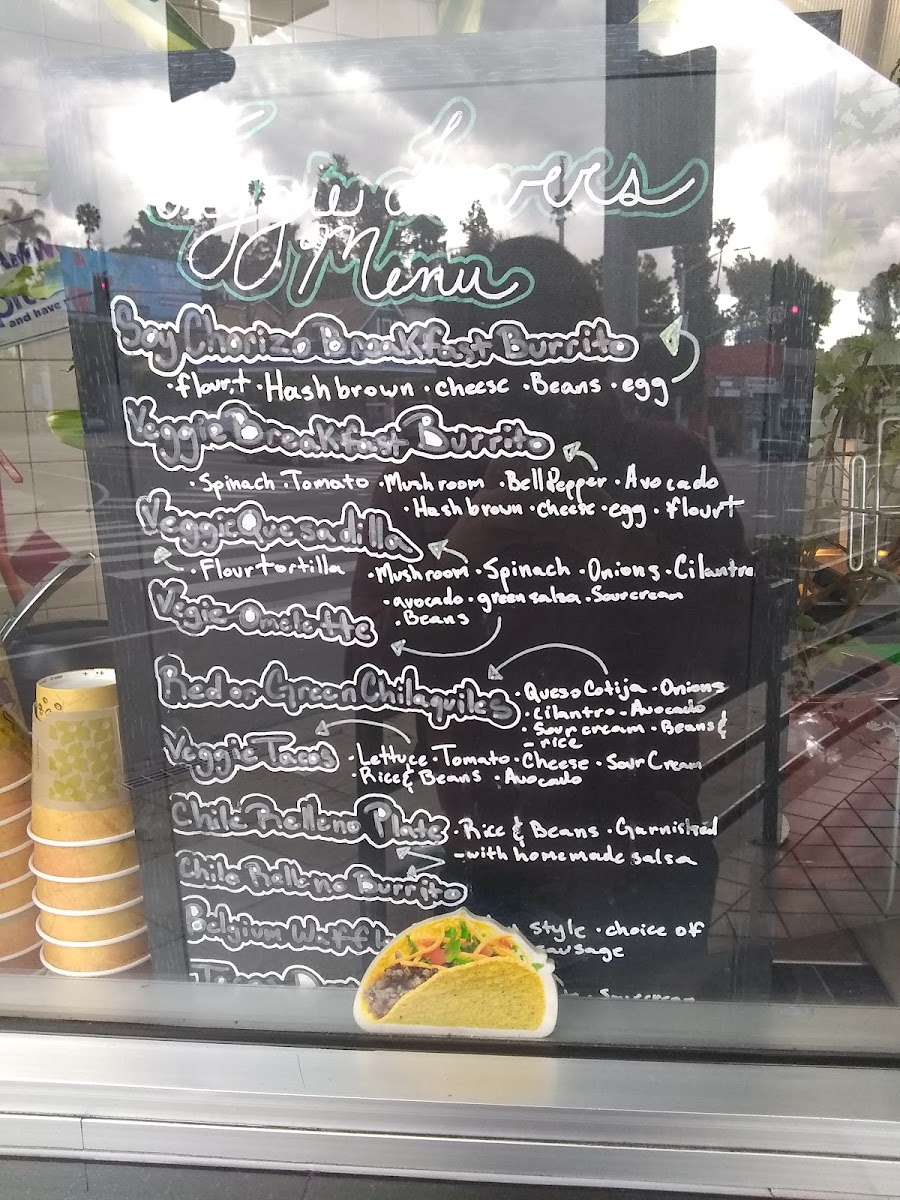 Veggie Lovers
Menu
and have
Soy Chorizo Breakfast Burrito
· flour t · Hashbrown · cheese · Beans · egg
Veggie Breakfast Burrito
· Spinach · Tomato · Mushroom · Bell Pepper · Avocado
· Hashbrown · cheese · egg · flour t
Veggie Quesadilla
· Flour tortilla · Mushroom · Spinach · Onions · Cilantro
· avocado · green salsa · Sour cream
· Beans
Vegie Omelette
Red or Green Chilaquiles · Queso Cotija · Onions
· Cilantro · Avocado
· Sour cream · Beans &
- rice
Veggie Tacos · Lettuce · Tomato · Cheese · Sour Cream
· Rice & Beans · Avocado
Chile Relleno Plate · Rice & Beans · Garnished
- with homemade salsa
Chile Relleno Burrito
Belgium Waffle style · choice of
sausage